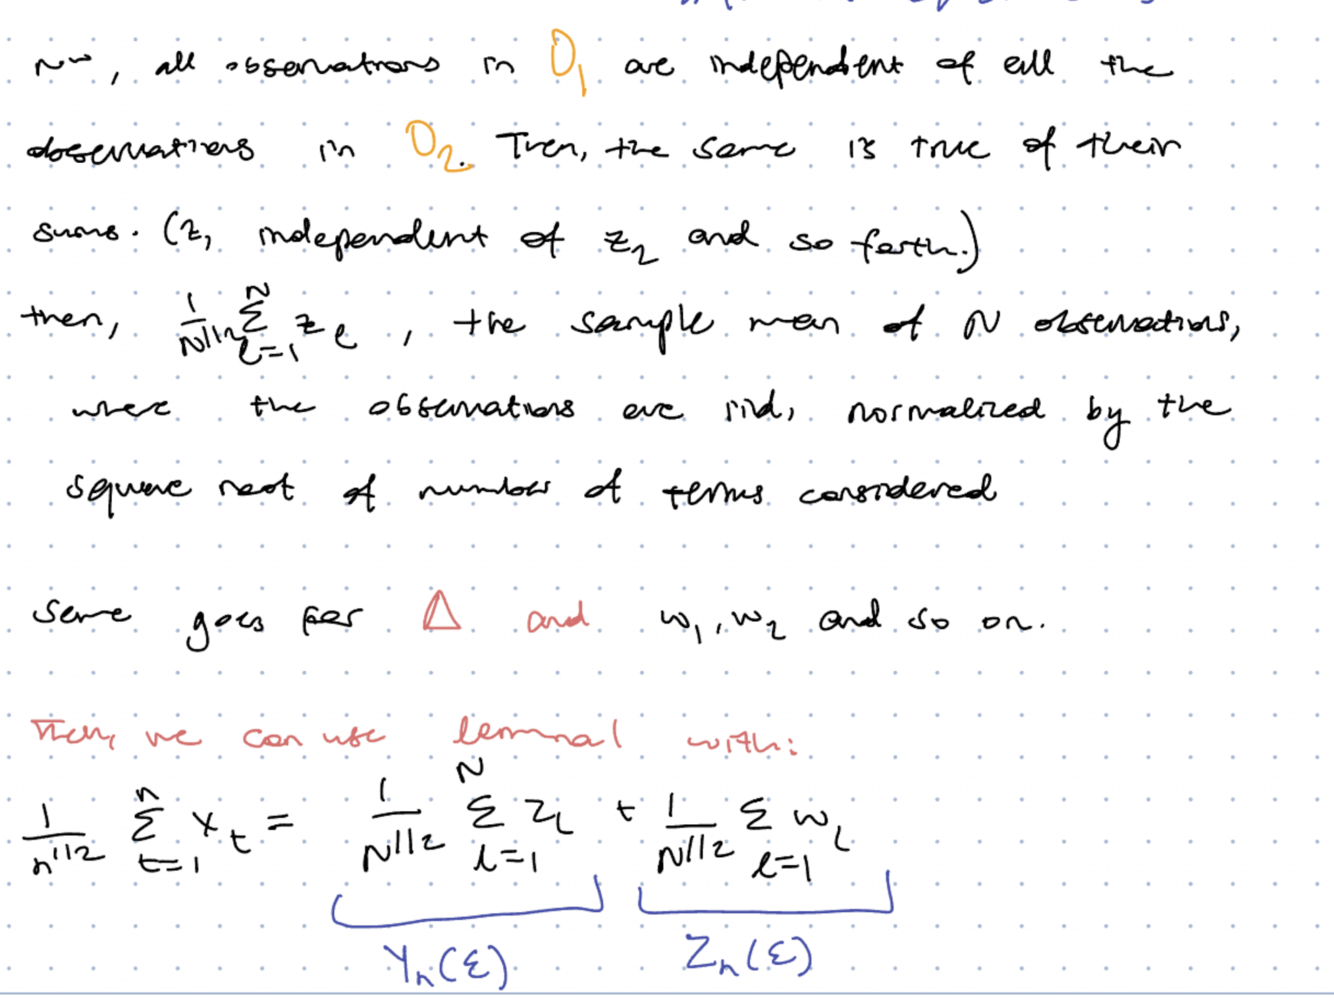 Now, all observations in O₁ are independent of all the
observations in O₂. Then, the same is true of their
sums. (z₁ independent of z₂ and so forth.)
then, 1/N^{1/2} Σ_{l=1}^{N} z_l, the sample mean of N observations,
where the observations are iid, normalized by the
square root of number of terms considered
Same goes for Δ and w₁, w₂ and so on.
Then, we can use lemma 1 with:
1/n^{1/2} Σ_{t=1}^{n} x_t = 1/N^{1/2} Σ_{l=1}^{N} z_l + 1/N^{1/2} Σ_{l=1} w_l
Y_n(ε) Z_n(ε)